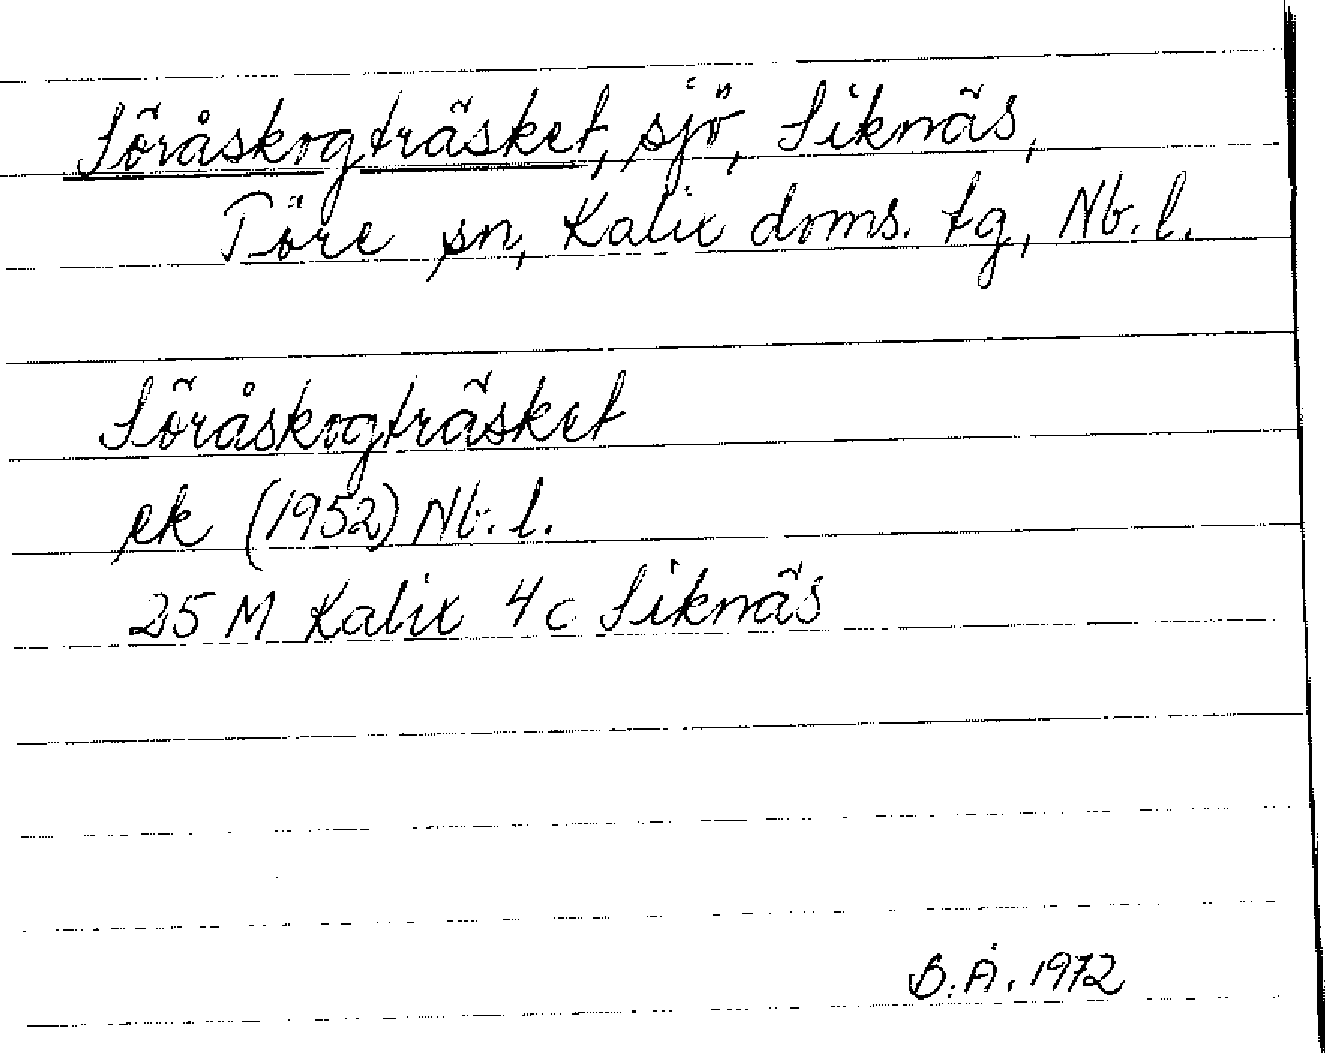 Söråskogträsket, sjö, Siknäs,
Töre sn, Kalix doms. tg, Nb. l.
Söråskogträsket
ek (1952) Nb. l.
25 M Kalix 4c Siknäs
B.Å. 1972